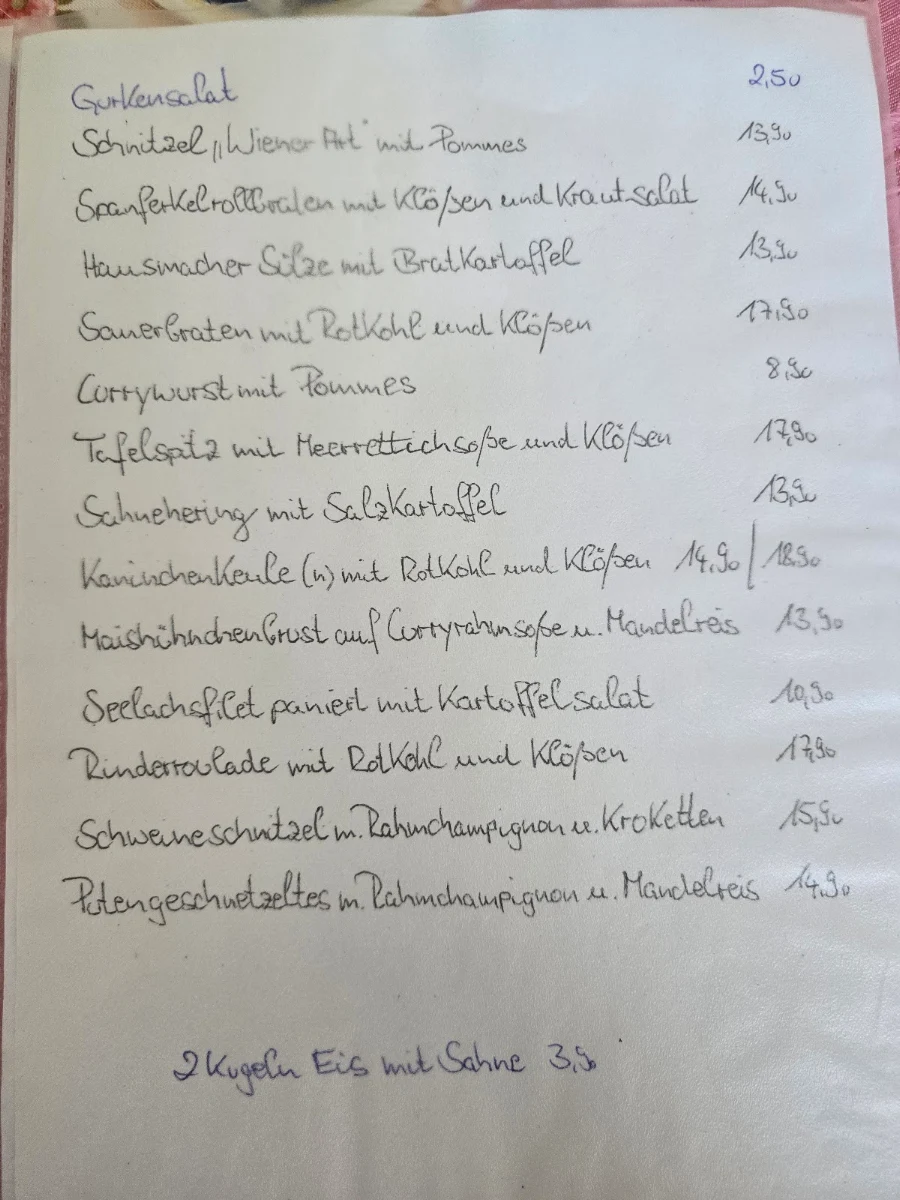 Gurkensalat 2,50
Schnitzel „Wiener Art" mit Pommes 13,90
Spanferkelrollbraten mit Klößen und Krautsalat 14,90
Hausmacher Sülze mit Bratkartoffel 13,90
Sauerbraten mit Rotkohl und Klößen 17,90
Currywurst mit Pommes 8,90
Tafelspitz mit Meerrettichsoße und Klößen 17,90
Sahnehering mit Salzkartoffel 13,90
Kaninchenkeule (n) mit Rotkohl und Klößen 14,90 | 18,90
Maishühnchenbrust auf Curryrahmsoße u. Mandelreis 13,90
Seelachsfilet paniert mit Kartoffelsalat 10,90
Rinderroulade mit Rotkohl und Klößen 17,90
Schweineschnitzel m. Rahmchampignon u. Kroketten 15,90
Putengeschnetzeltes m. Rahmchampignon u. Mandelreis 14,90
2 Kugeln Eis mit Sahne 3,90